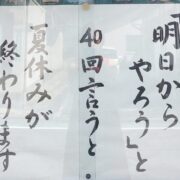 「明日から
やろう」と
40回言うと・
夏休みが
終わります